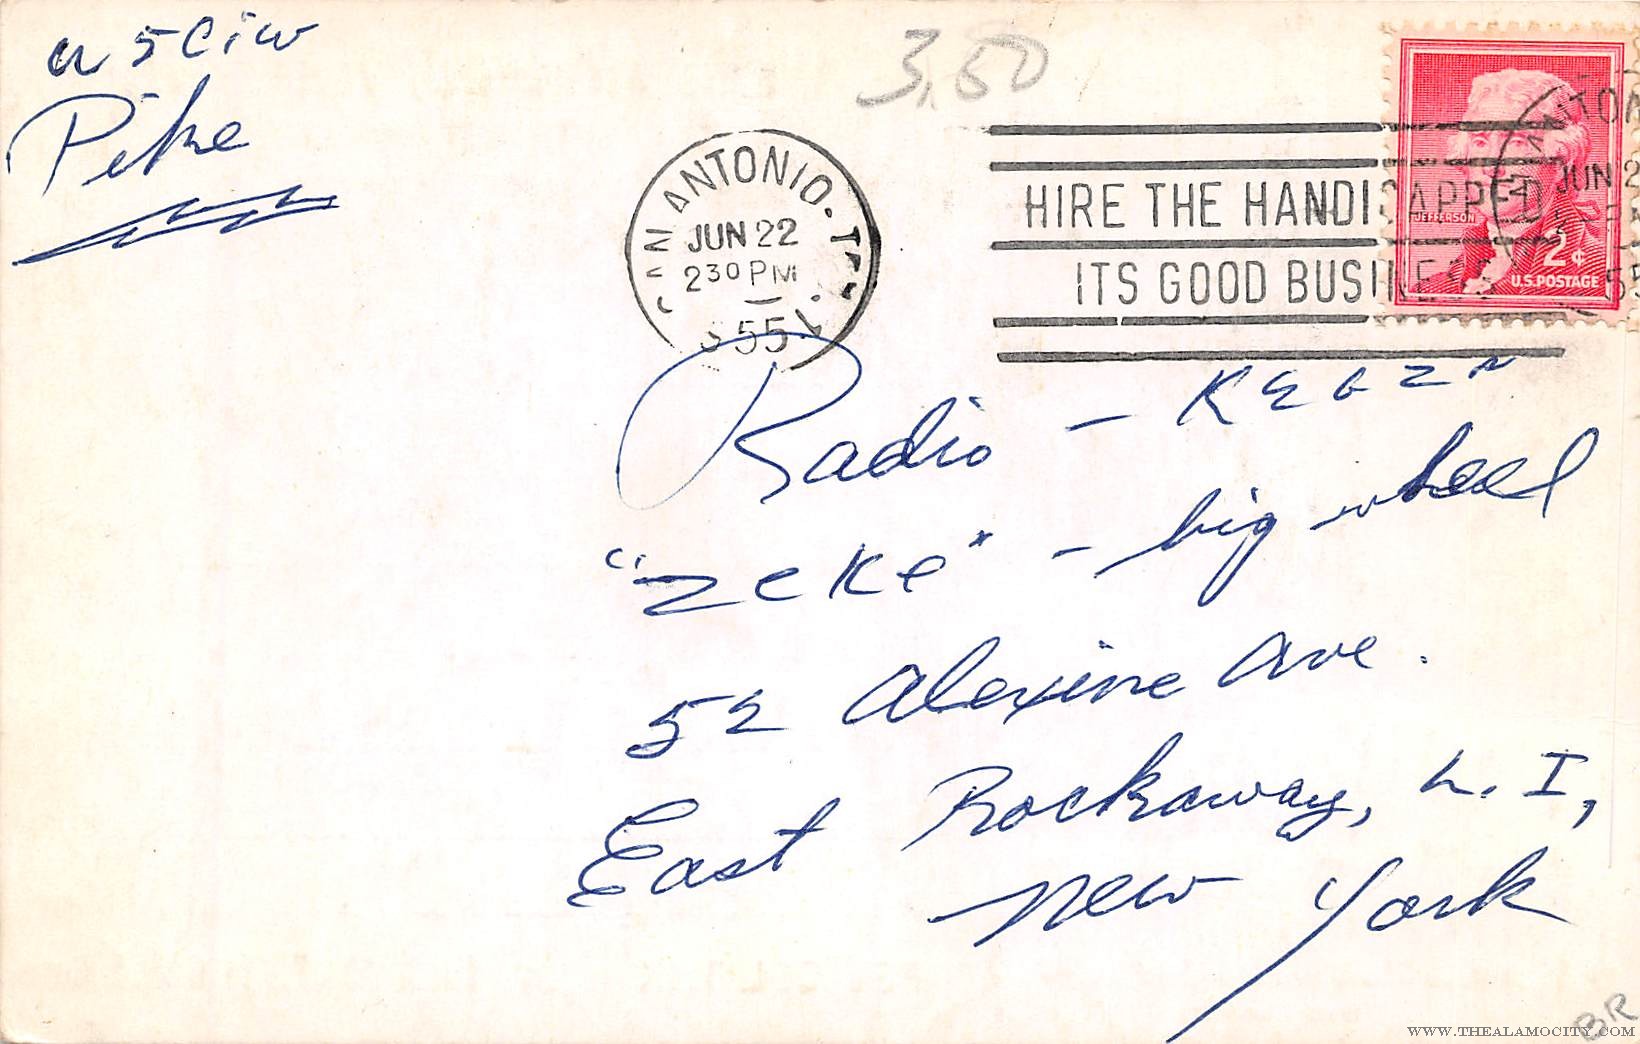 W5CIW
Pike
3.50
SAN ANTONIO. TEX.
JUN 22
2 30 PM
55
HIRE THE HANDICAPPED
ITS GOOD BUSINESS
JEFFERSON
2¢
U.S.POSTAGE
JUN 2
55
Radio -
"Zeke" - big wheel
52 Alexine Ave.
East Rockaway, L.I,
New York
BR
WWW.THEALAMOCITY.COM